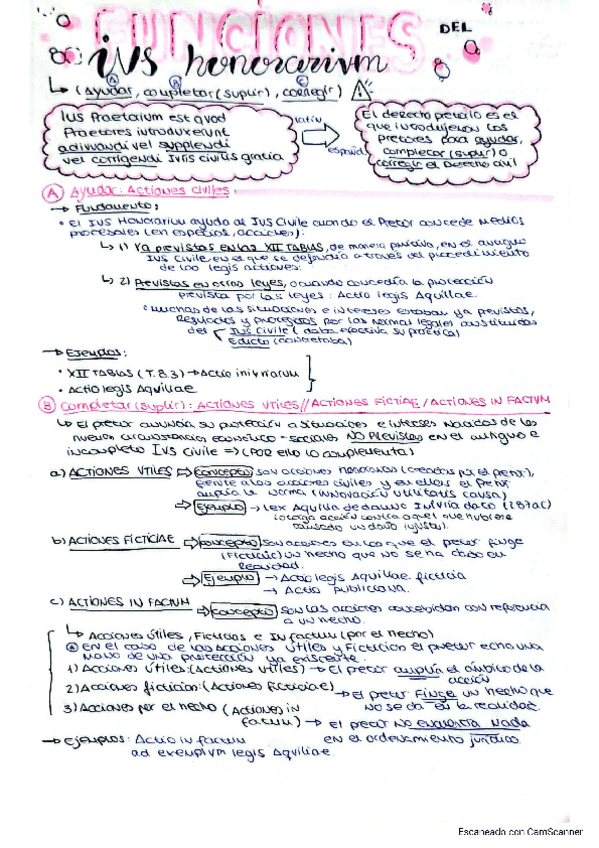 FUNCIONES DEL
iVS honorarivm
↳ (ayudar, completar (suplir), corregir)
A B C
Ius Praetorium est quod
Praetores introduxerunt
adiuvandi vel supplendi
vel corrigendi Iuris civilis gratia
latín
español
El derecho pretorio es el
que introdujeron los
pretores para ayudar,
completar (suplir) o
corregir el Derecho civil
A Ayudar: Actiones civiles.
→ Fundamento:
• El IVS Honorarium ayuda al IVS Civile cuando el Pretor concede medios
procesales (en especial, acciones):
↳ 1) Ya previstas en las XII TABLAS, de manera primitiva, en el antiguo
IVS Civile en el que se defendía a través del procedimiento
de las legis actiones.
↳ 2) Previstas en otras leyes, cuando concedía la protección
prevista por las leyes: Actio legis Aquiliae.
• Muchas de las situaciones e intereses estaban ya previstos,
regulados y protegidos por las normas legales constituidas
del IVS Civile (daba efectiva su práctica)
Edicto (concretaba)
→ Ejemplos:
• XII TABLAS (T. 8.3) → Actio iniuriarum
• Actio legis Aquiliae
B Completar (suplir): ACTIONES VTILES // ACTIONES FICTIAE / ACTIONES IN FACTVM
↳ El pretor anuncia su protección a situaciones e intereses nacidos de las
nuevas circunstancias económico-sociales NO PREVISTAS en el antiguo e
incompleto Ivs Civile => (POR ello lo complementa)
a) ACTIONES VTILES ⇒ Concepto → son acciones honorarias (creadas por el pretor),
frente a las acciones civiles y en ellas el Pretor
amplía la norma (innovación utilitatis causa)
⇒ Ejemplo → Lex Aquilia de damno iniuria dato (287ac)
(otorga acción contra aquel que hubiere
causado un daño injusto).
b) ACTIONES FICTICIAE ⇒ Concepto → son acciones en las que el pretor finge
(ficticia) un hecho que no se ha dado en
realidad.
⇒ Ejemplo → Actio legis Aquiliae ficticia
→ Actio publiciana.
c) ACTIONES IN FACTVM ⇒ Concepto → son las acciones concebidas con referencia
a un hecho.
↳ Acciones útiles, Ficticias e In factum (por el hecho)
en el caso de las acciones útiles y ficticias el pretor echa una
mano de una protección ya existente.
1) Acciones útiles (Actiones utiles) → el pretor amplía el ámbito de la
acción
2) Acciones ficticias (Actiones ficticiae) → el pretor Finge un hecho que
no se da en la realidad.
3) Acciones por el hecho (Actiones in
factum) → El pretor No encuentra nada
en el ordenamiento jurídico.
→ Ejemplos: Actio in factum
ad exemplum legis Aquiliae.
Escaneado con CamScanner